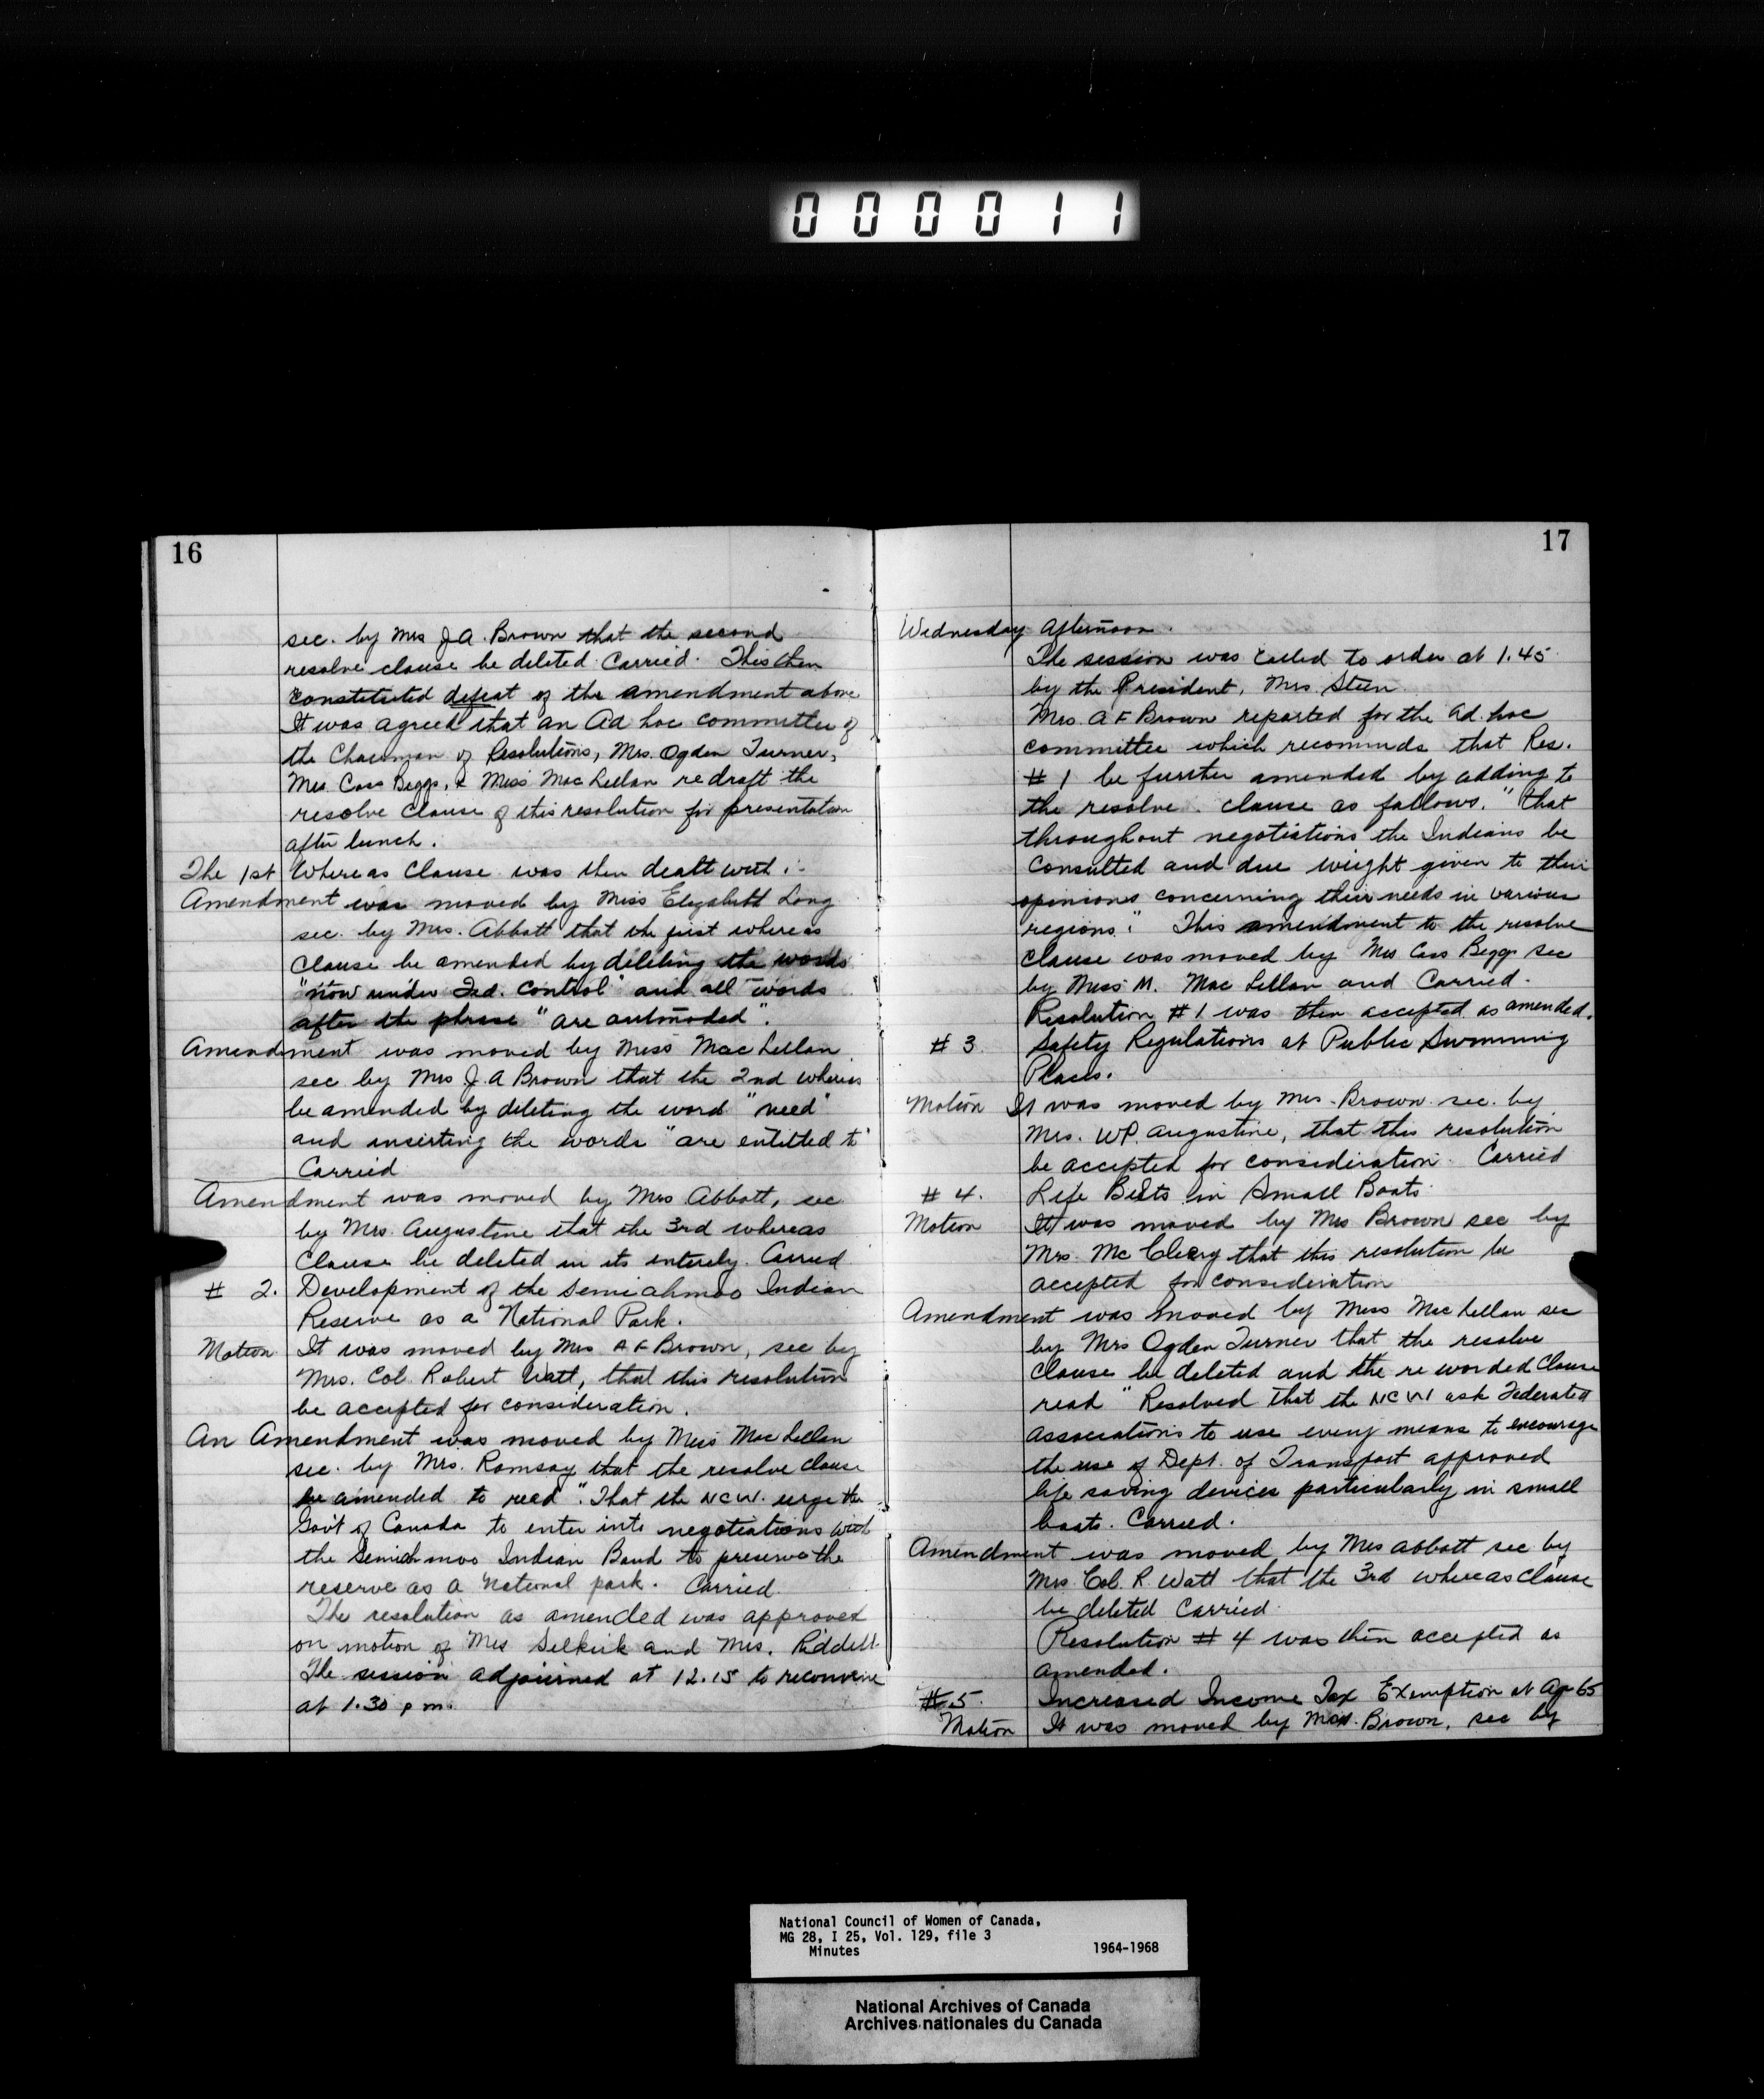 000011
16
sec. by Mrs J.A. Brown that the second
resolve clause be deleted. Carried. This then
constituted defeat of the amendment above
It was agreed that an Ad hoc committee of
the Chairman of Resolutions, Mrs. Ogden Turner,
Mrs. Cass Beggs, & Miss MacLellan redraft the
resolve clause of this resolution for presentation
after lunch.
The 1st Whereas Clause was then dealt with:-
Amendment was moved by Miss Elizabeth Long
sec. by Mrs. Abbott that the first whereas
clause be amended by deleting the words
"now under Fed. control" and all words
after the phrase "are outmoded".
Amendment was moved by Miss MacLellan
sec by Mrs J.A Brown that the 2nd whereas
be amended by deleting the word "need"
and inserting the words "are entitled to"
Carried
Amendment was moved by Mrs Abbott, sec
by Mrs. Augustine that the 3rd whereas
Clause be deleted in its entirety. Carried
# 2. Development of the Semiahmoo Indian
Reserve as a National Park.
Motion It was moved by Mrs A F Brown, sec by
Mrs. Col. Robert Watt, that this resolution
be accepted for consideration.
An Amendment was moved by Miss MacLellan
sec. by Mrs. Ramsay that the resolve clause
be amended to read ". That the NCW. urge the
Gov't of Canada to enter into negotiations with
the Semiahmoo Indian Band to preserve the
reserve as a national park. Carried.
The resolution as amended was approved
on motion of Mrs Selkirk and Mrs. Riddell.
The session adjourned at 12.15 to reconvene
at 1.30 p m.
17
Wednesday Afternoon.
The session was called to order at 1.45
by the President, Mrs. Steen
Mrs. A F Brown reported for the ad. hoc
committee which recommends that Res.
# 1 be further amended by adding to
the resolve clause as follows. "that
throughout negotiations the Indians be
consulted and due weight given to their
opinions concerning their needs in various
regions". This amendment to the resolve
clause was moved by Mrs Cass Beggs sec
by Miss M. MacLellan and Carried.
Resolution # 1 was then accepted as amended.
# 3 Safety Regulations at Public Swimming
Places.
Motion It was moved by Mrs. Brown sec. by
Mrs. W.P. Augustine, that this resolution
be accepted for consideration. Carried
# 4. Life Belts in Small Boats
Motion It was moved by Mrs Brown sec by
Mrs. McCleery that this resolution be
accepted for consideration
Amendment was moved by Miss MacLellan sec
by Mrs Ogden Turner that the resolve
clause be deleted and the re worded Clause
read "Resolved that the NCW ask Federated
Associations to use every means to encourage
the use of Dept. of Transport approved
life saving devices particularly in small
boats. Carried.
Amendment was moved by Mrs Abbott sec by
Mrs. Col. R. Watt that the 3rd whereas clause
be deleted Carried.
Resolution # 4 was then accepted as
amended.
# 5. Increased Income Tax Exemption at Age 65
Motion It was moved by Mrs. Brown, sec by
National Council of Women of Canada,
MG 28, I 25, Vol. 129, file 3
Minutes 1964-1968
National Archives of Canada
Archives nationales du Canada